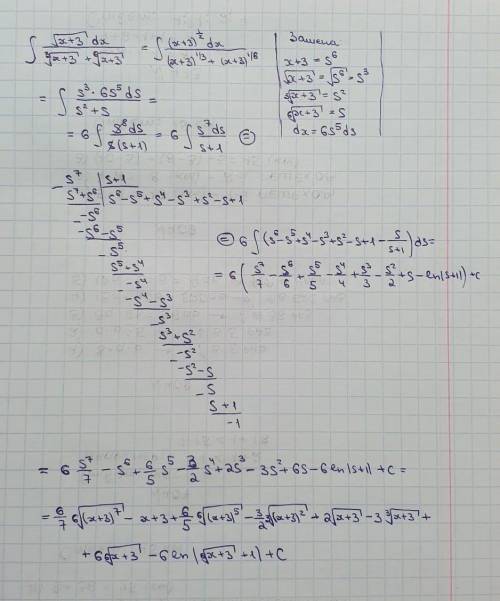 ∫ √(x+3) dx / (∛(x+3) + ⁶√(x+3)) = ∫ (x+3)^(1/2) dx / ((x+3)^(1/3) + (x+3)^(1/6))
= ∫ s³ · 6s⁵ ds / (s² + s) =
= 6 ∫ s⁸ ds / (s(s+1)) = 6 ∫ s⁷ ds / (s+1) ⊜
Замена
x+3 = s⁶
√(x+3) = √(s⁶) = s³
∛(x+3) = s²
⁶√(x+3) = s
dx = 6s⁵ds
− s⁷ | s+1
s⁷+s⁶ | s⁶ − s⁵ + s⁴ − s³ + s² − s + 1
− −s⁶
−s⁶ − s⁵
− s⁵
s⁵ + s⁴
− −s⁴
−s⁴ − s³
− s³
s³ + s²
− −s²
−s² − s
− s
s + 1
−1
⊜ 6 ∫ (s⁶ − s⁵ + s⁴ − s³ + s² − s + 1 − s/(s+1)) ds =
= 6 (s⁷/7 − s⁶/6 + s⁵/5 − s⁴/4 + s³/3 − s²/2 + s − ln|s+1|) + C
= 6 s⁷/7 − s⁶ + 6/5 s⁵ − 3/2 s⁴ + 2s³ − 3s² + 6s − 6 ln|s+1| + C =
= 6/7 ⁶√((x+3)⁷) − x + 3 + 6/5 ⁶√((x+3)⁵) − 3/2 ∛((x+3)²) + 2√(x+3) − 3∛(x+3) +
+ 6 ⁶√(x+3) − 6 ln(⁶√(x+3) + 1) + C